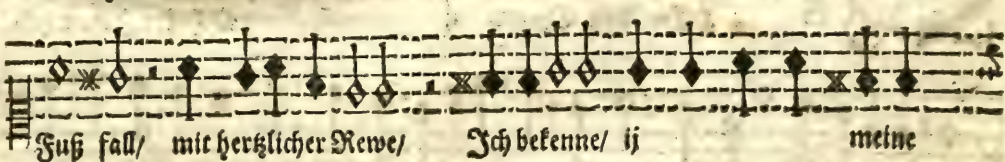 Fuß fall/ mit hertzlicher Rewe/ Ich bekenne/ ij meine